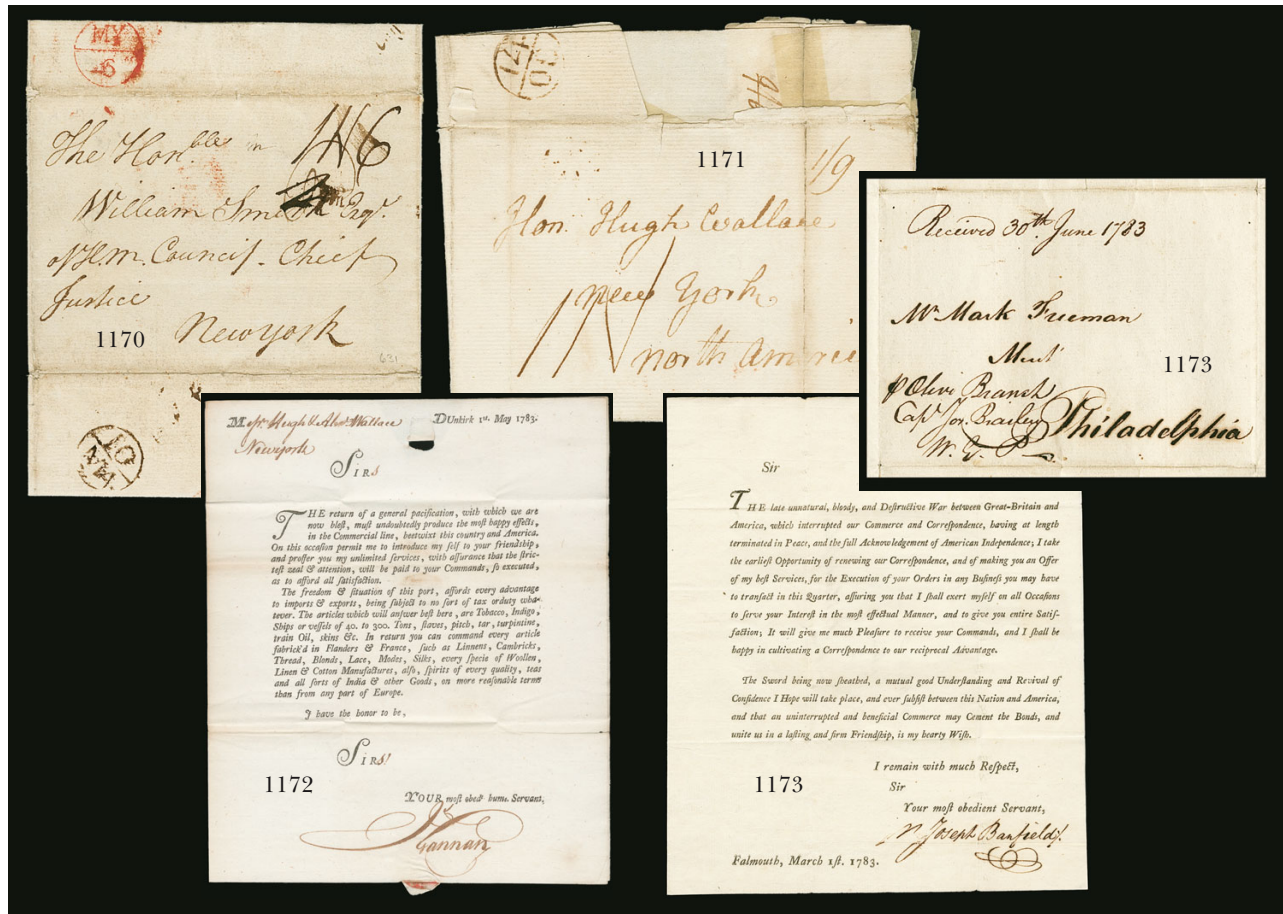 MY
6
The Hon.ble
1N6
William Smith Esqr.
of H.M. Council. Chief
Justice
1170
Newyork
631
10
MA
OC
1171
1/9
Hon. Hugh Wallace
New York
North Ameri
Received 30th June 1783
Mr Mark Freeman
Mert
1173
p Olive Branch
Capt Jos. Brailey
Philadelphia
W. G. P
Messrs Hugh & Alexr Wallace
DUnkirk 1st. May 1783.
Newyork
SIRS
THE return of a general pacification, with which we are
now blest, must undoubtedly produce the most happy effects,
in the Commercial line, beetwixt this country and America.
On this occasion permit me to introduce my self to your friendship,
and proffer you my unlimited services, with assurance that the stric-
test zeal & attention, will be paid to your Commands, so executed,
as to afford all satisfaction.
The freedom & situation of this port, affords every advantage
to imports & exports, being subject to no sort of tax orduty wha-
tever. The articles which will answer best here, are Tobacco, Indigo,
Ships or vessels of 40. to 300. Tons, staves, pitch, tar, turpintine,
train Oil, skins &c. In return you can command every article
fabrick'd in Flanders & France, such as Linnens, Cambricks,
Thread, Blonds, Lace, Modes, Silks, every specie of Woollen,
Linen & Cotton Manufactures, also, spirits of every quality, teas
and all sorts of India & other Goods, on more reasonable terms
than from any part of Europe.
I have the honor to be,
SIRS
1172
YOUR most obedt humb. Servant,
J Gannan
Sir
THE late unnatural, bloody, and Destructive War between Great-Britain and
America, which interrupted our Commerce and Correspondence, having at length
terminated in Peace, and the full Acknowledgement of American Independence; I take
the earliest Opportunity of renewing our Correspondence, and of making you an Offer
of my best Services, for the Execution of your Orders in any Business you may have
to transact in this Quarter, assuring you that I shall exert myself on all Occasions
to serve your Interest in the most effectual Manner, and to give you entire Satis-
faction; It will give me much Pleasure to receive your Commands, and I shall be
happy in cultivating a Correspondence to our reciprocal Advantage.
The Sword being now sheathed, a mutual good Understanding and Revival of
Confidence I Hope will take place, and ever subsist between this Nation and America,
and that an uninterrupted and beneficial Commerce may Cement the Bonds, and
unite us in a lasting and firm Friendship, is my hearty Wish.
I remain with much Respect,
1173
Sir
Your most obedient Servant,
Joseph Banfield
Falmouth, March 1st. 1783.